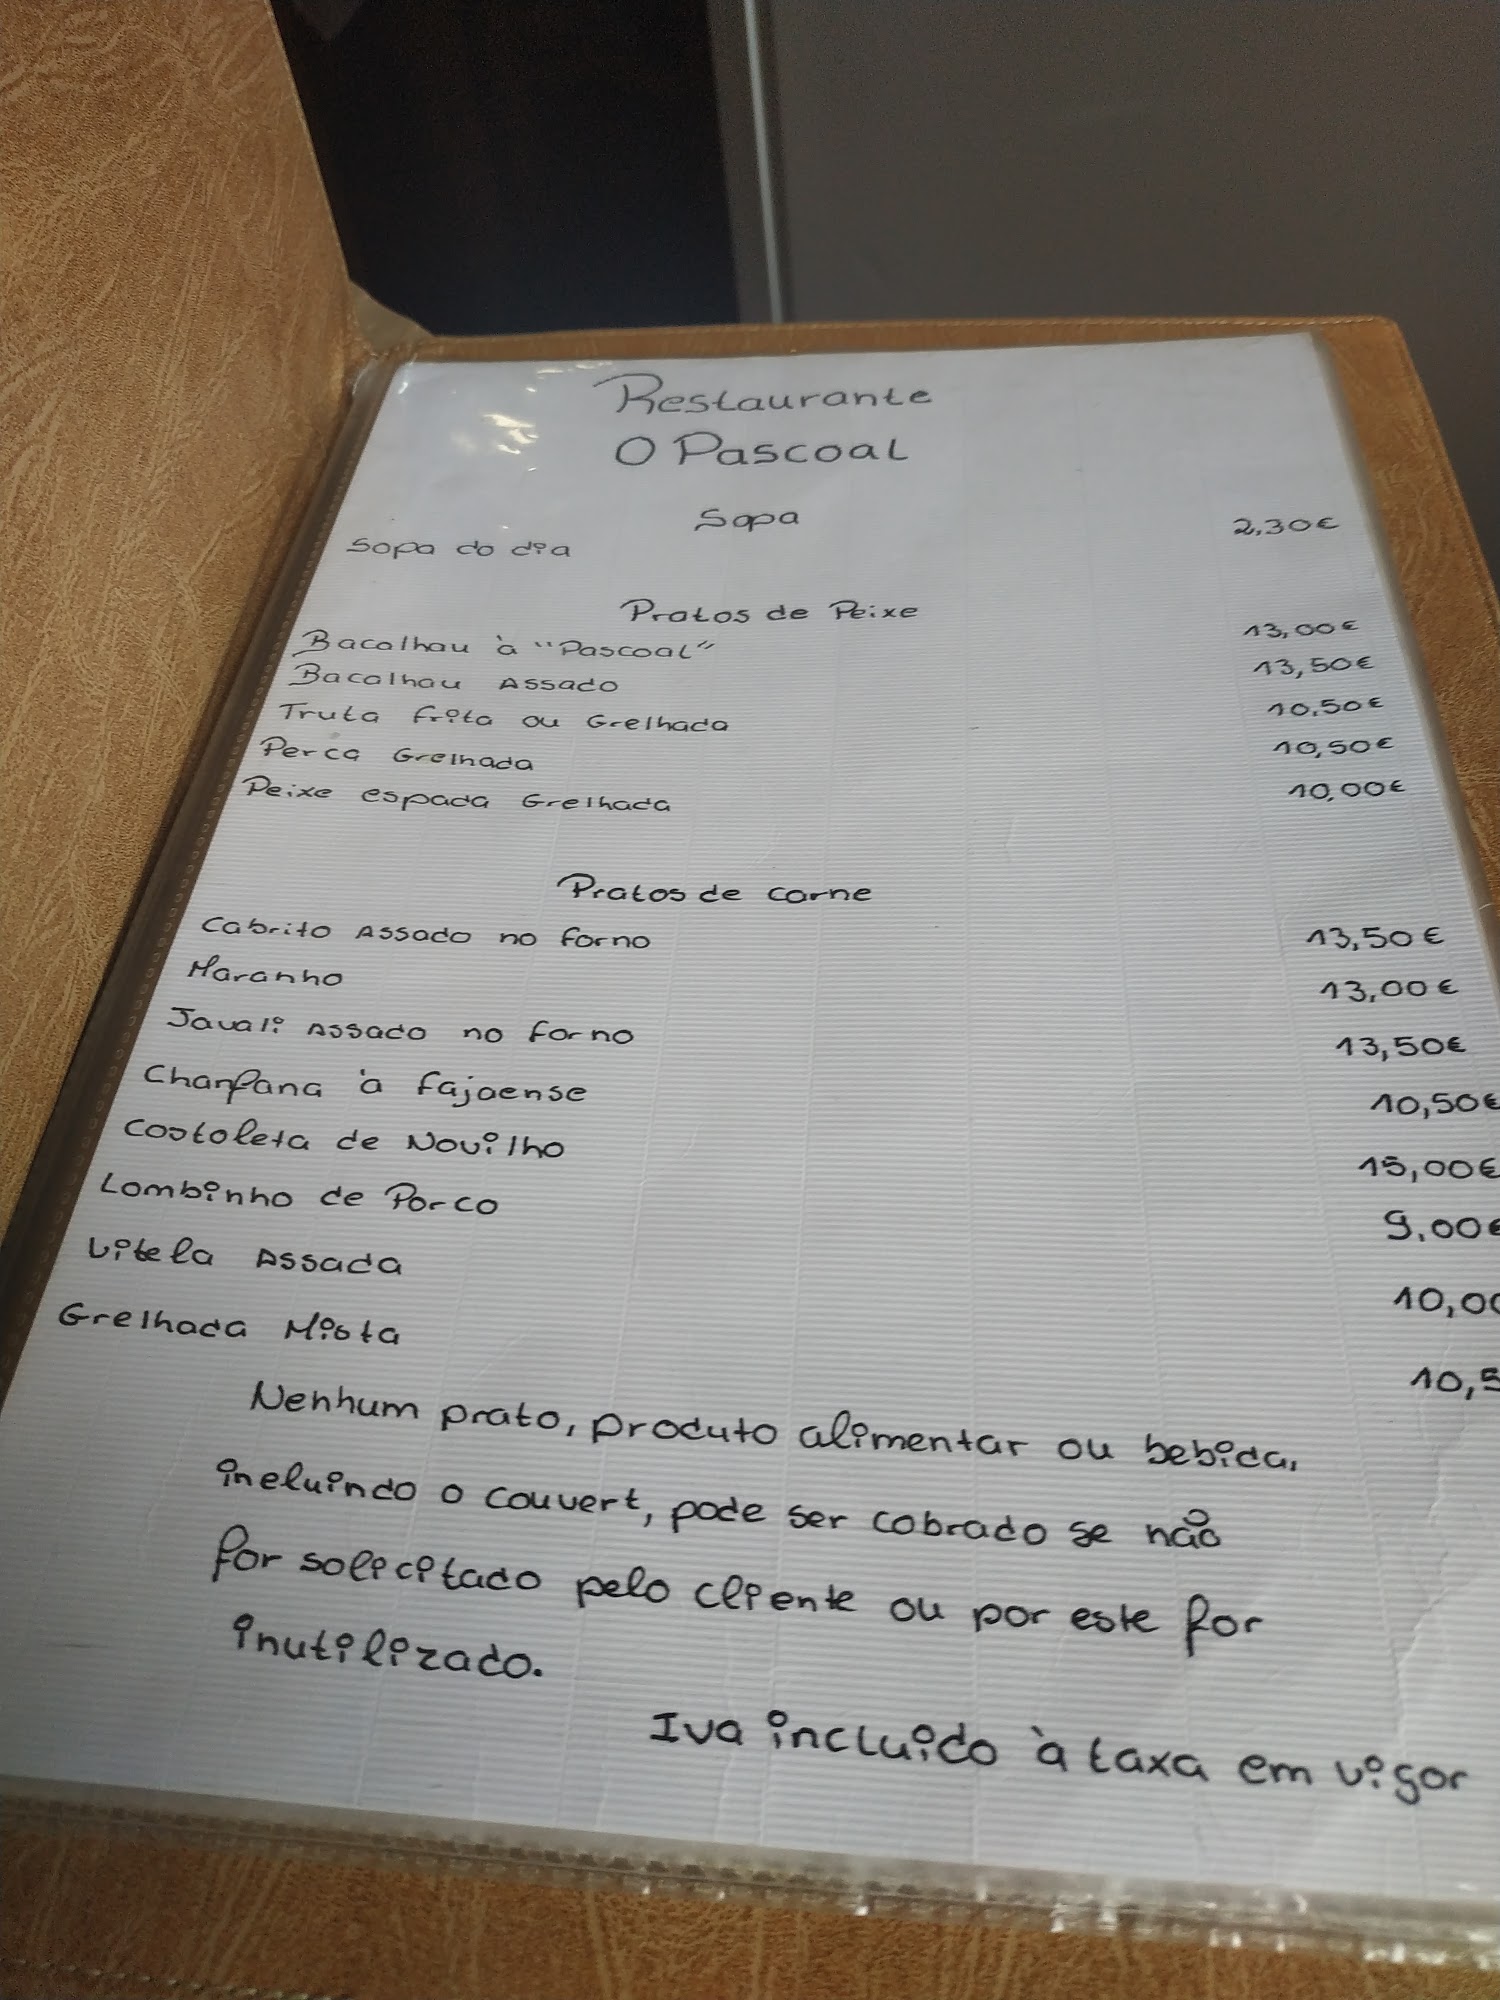 Restaurante
O Pascoal
Sopa
Sopa do dia 2,30€
Pratos de Peixe
Bacalhau à "Pascoal" 13,00€
Bacalhau Assado 13,50€
Truta frita ou Grelhada 10,50€
Perca Grelhada 10,50€
Peixe espada Grelhada 10,00€
Pratos de carne
Cabrito Assado no forno 13,50€
Maranho 13,00€
Javali Assado no forno 13,50€
Chanfana à fajaense 10,50€
Costoleta de Novilho 15,00€
Lombinho de Porco 9,00€
Vitela Assada 10,00
Grelhada Mista 10,5
Nenhum prato, produto alimentar ou bebida,
incluindo o couvert, pode ser cobrado se não
for solicitado pelo cliente ou por este for
inutilizado.
Iva incluido à taxa em vigor